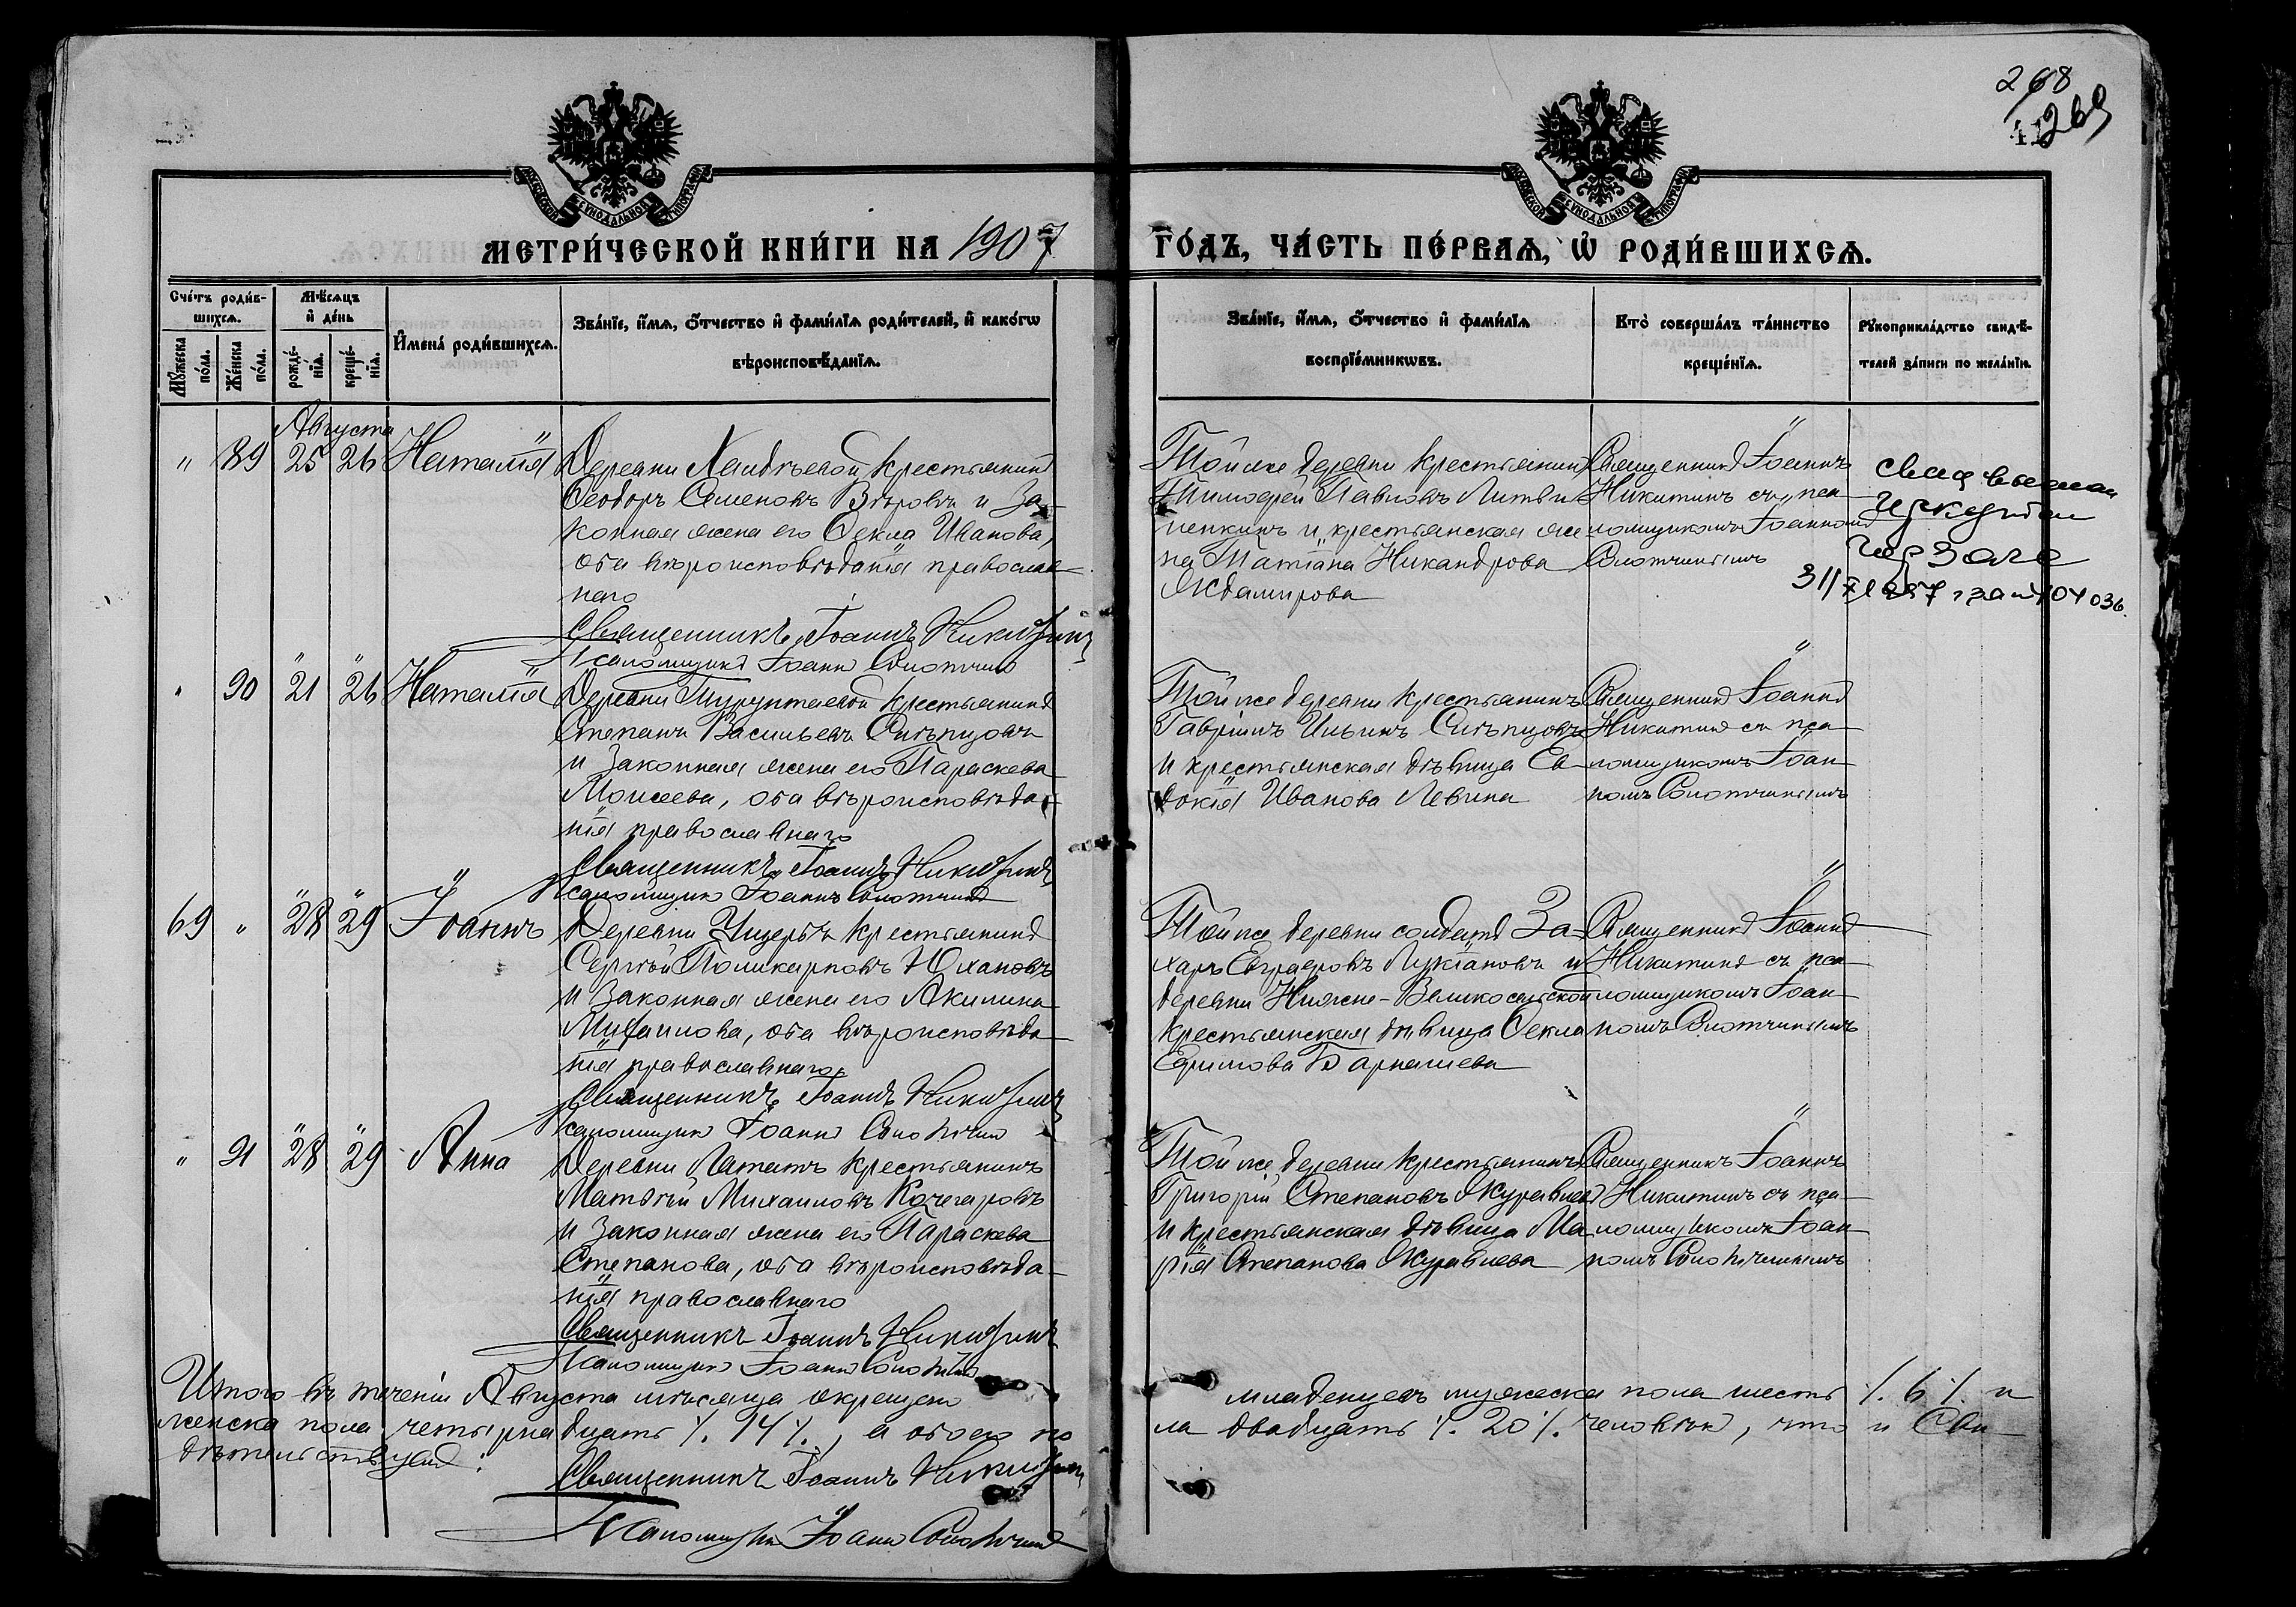 268
269
МЕТРИ́ЧЕСКОЙ КНИ́ГИ НА 1907
ГО́ДЪ, ЧА́СТЬ ПЕ́РВАѦ, Ѡ҆ РОДИ́ВШИХСѦ.
Сче́тъ роди́в-
шихсѧ.
Мѣ́сѧцъ
и҆ де́нь
И҆мена̀ роди́вшихсѧ.
Зва́нїе, и҆́мѧ, ѻ҆́тчество и҆ фамѝлїѧ роди́телей, и҆ како́гѡ
вѣроисповѣ́данїѧ.
Мꙋ́жеска
по́ла.
Же́нска
по́ла.
рожде́-
нїѧ.
креще́-
нїѧ.
Зва́нїе, и҆́мѧ, ѻ҆́тчество и҆ фамѝлїѧ
воспрїе́мникѡвъ.
Кто̀ соверша́лъ та́инство
креще́нїѧ.
Рꙋкоприкла́дство свидѣ́-
телей за́писи по жела́нїю.
Августа
" 89 25 26 Наталія
Деревни Хандѣевой крестьянинъ
Ѳеодоръ Семеновъ Вѣровъ и за-
конная жена его Ѳекла Иванова,
оба вѣроисповѣданія православ-
наго
Священникъ Іоаннъ Никитинъ
Псаломщикъ Іоаннъ Солотчинъ
Той же деревни крестьянинъ
Тимофей Павловъ Литви
ненкинъ и крестьянская же-
на Татіана Никандрова
Ждамирова
Священникъ Іоаннъ
Никитинъ съ пса-
ломщикомъ Іоанномъ
Солотчинымъ
" 90 21 26 Наталія
Деревни Турунтаевой крестьянинъ
Степанъ Васильевъ Слѣпцовъ
и законная жена его Параскева
Моисеева, оба вѣроисповѣда-
нія православнаго
Священникъ Іоаннъ Никитинъ
Псаломщикъ Іоаннъ Солотчинъ
Той же деревни крестьянинъ
Гавріилъ Ильинъ Слѣпцовъ
и крестьянская дѣвица Ев-
докія Иванова Левина
Священникъ Іоаннъ
Никитинъ съ пса-
ломщикомъ Іоан-
номъ Солотчинымъ
69 " 28 29 Іоаннъ
Деревни Унцеръ крестьянинъ
Сергѣй Поликарповъ Юхановъ
и законная жена его Акилина
Михаилова, оба вѣроисповѣда-
нія православнаго
Священникъ Іоаннъ Никитинъ
Псаломщикъ Іоаннъ Солотчинъ
Той же деревни солдатъ За-
харъ Евграфовъ Лукіановъ и
деревни Нижне-Великосельской
крестьянская дѣвица Ѳекла
Ефимова Барнашева
Священникъ Іоаннъ
Никитинъ съ пса-
ломщикомъ Іоан-
номъ Солотчинымъ
" 91 28 29 Анна
Деревни Лататъ крестьянинъ
Матѳѣй Михаиловъ Кочегаровъ
и законная жена его Параскева
Степанова, оба вѣроисповѣда-
нія православнаго
Священникъ Іоаннъ Никитинъ
Псаломщикъ Іоаннъ Солотчинъ
Той же деревни крестьянинъ
Григорій Степановъ Журавлевъ
и крестьянская дѣвица Ма-
рія Степанова Журавлева
Священникъ Іоаннъ
Никитинъ съ пса-
ломщикомъ Іоан-
номъ Солотчинымъ
Итого въ теченіи Августа мѣсяца окрещено младенцевъ мужеска пола шесть /. 6 /. и
женска пола четырнадцать /. 14 /., а обоего по ла двадцать /. 20 /. человѣкъ, что и сви-
дѣтельствуемъ:
Священникъ Іоаннъ Никитинъ
Псаломщикъ Іоаннъ Солотчинъ